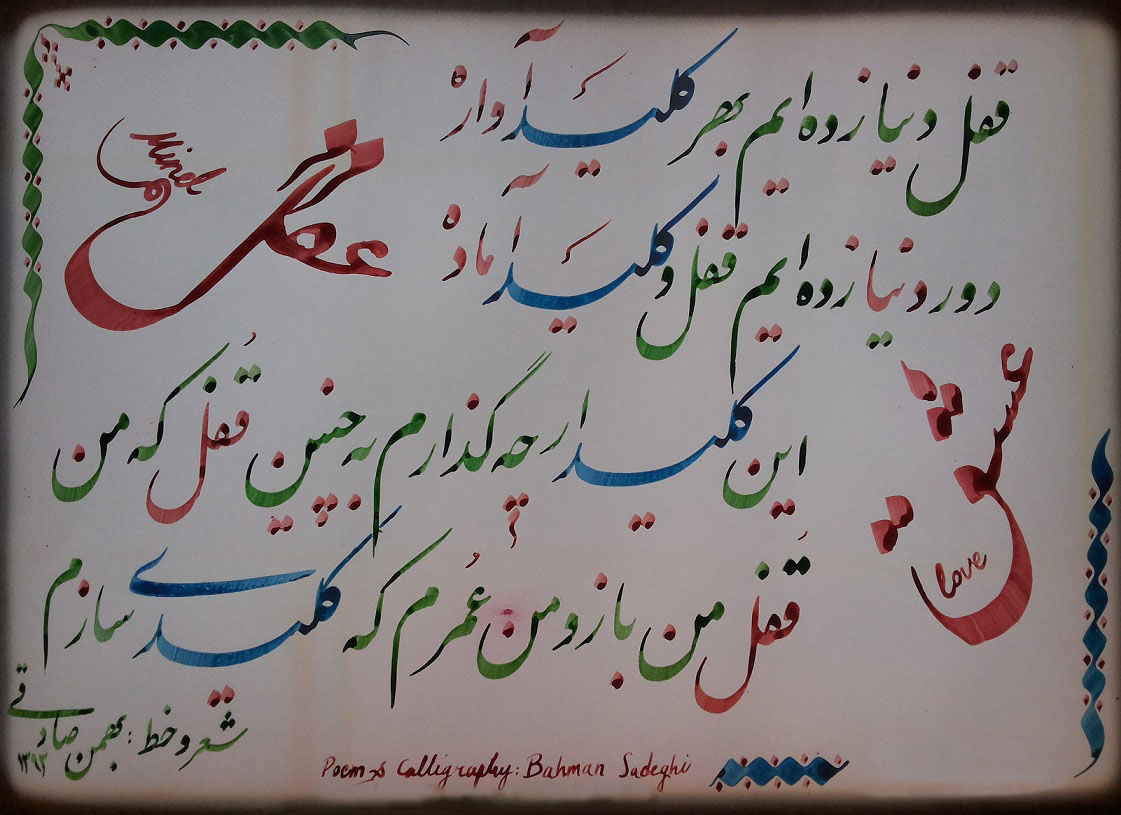 قفل دنیا زده ایم بهر کلید آواره
عقل
Mind
دور دنیا زده ایم قفل و کلید آماده
عشق
love
این کلید ار چه گذارم به چنین قُفل که من
قُفل من باز و من عُمرم که کلیدی سازم
شعر و خط : بهمن صادقی
۱۳۹۳
Poem & Calligraphy: Bahman Sadeghi